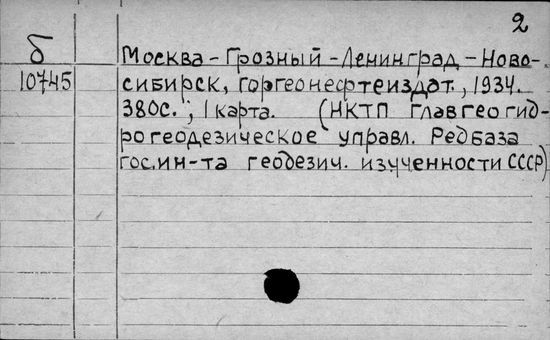 2
б
10745
Москва-Грозный-Ленинград-Ново-
сибирск, горгеонефтеиздат, 1934.
380с.; 1 карта. (НКТП Главгеогид-
рогеодезическое управл. Редбаза
гос.ин-та геодезич. изученности СССР)